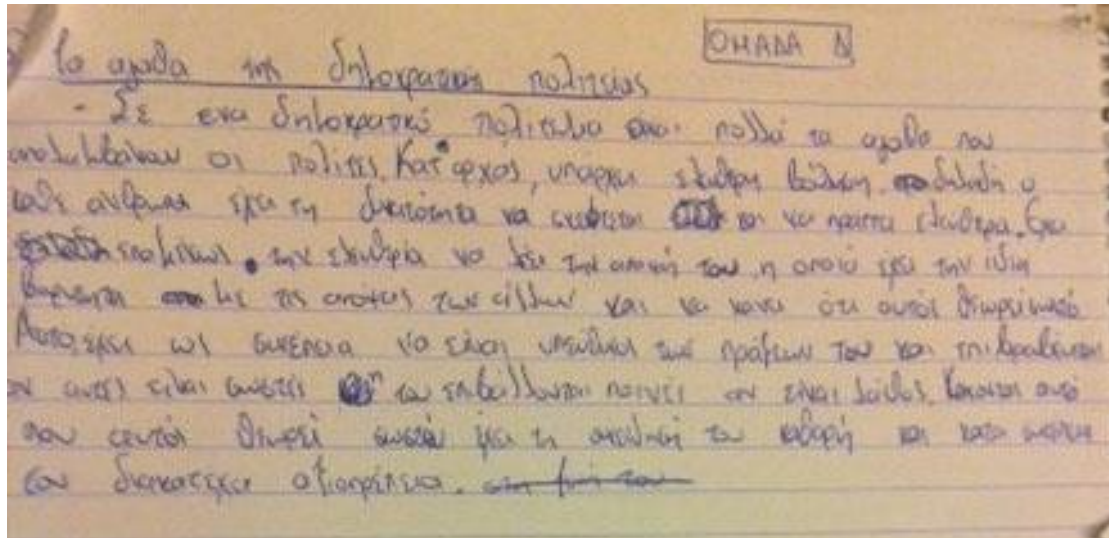 ΟΜΑΔΑ Δ
Τα αγαθα της δημοκρατικής πολιτείας
- Σε ενα δημοκρατικό πολίτευμα είναι πολλά τα αγαθα που
απολαμβάνουν οι πολίτες. Κατ' αρχάς, υπάρχει ελευθερη βούληση. δηλαδή ο
καθε ανθρωπος εχει τη δυνατότητα να σκεφτεται και να πραττει ελευθερα. Εχει
επομένως την ελευθερία να λεει την αποψή του, η οποία εχει την ίδια
βαρύτητα με τις αποψεις των αλλων και να κανει ότι αυτός θεωρεί σωστό
Αυτο εχει ως συνέπεια να είναι υπευθυνος των πράξεων του και επιβραβεύεται
αν αυτες είναι σωστές η του επιβαλλονται ποινές αν είναι λαθος. Κανοντας αυτο
που αυτός θεωρεί σωστό εχει τη συνείδησή του καθαρή και κατα
τον διακατεχει αξιοπρέπεια. στη ζωή του